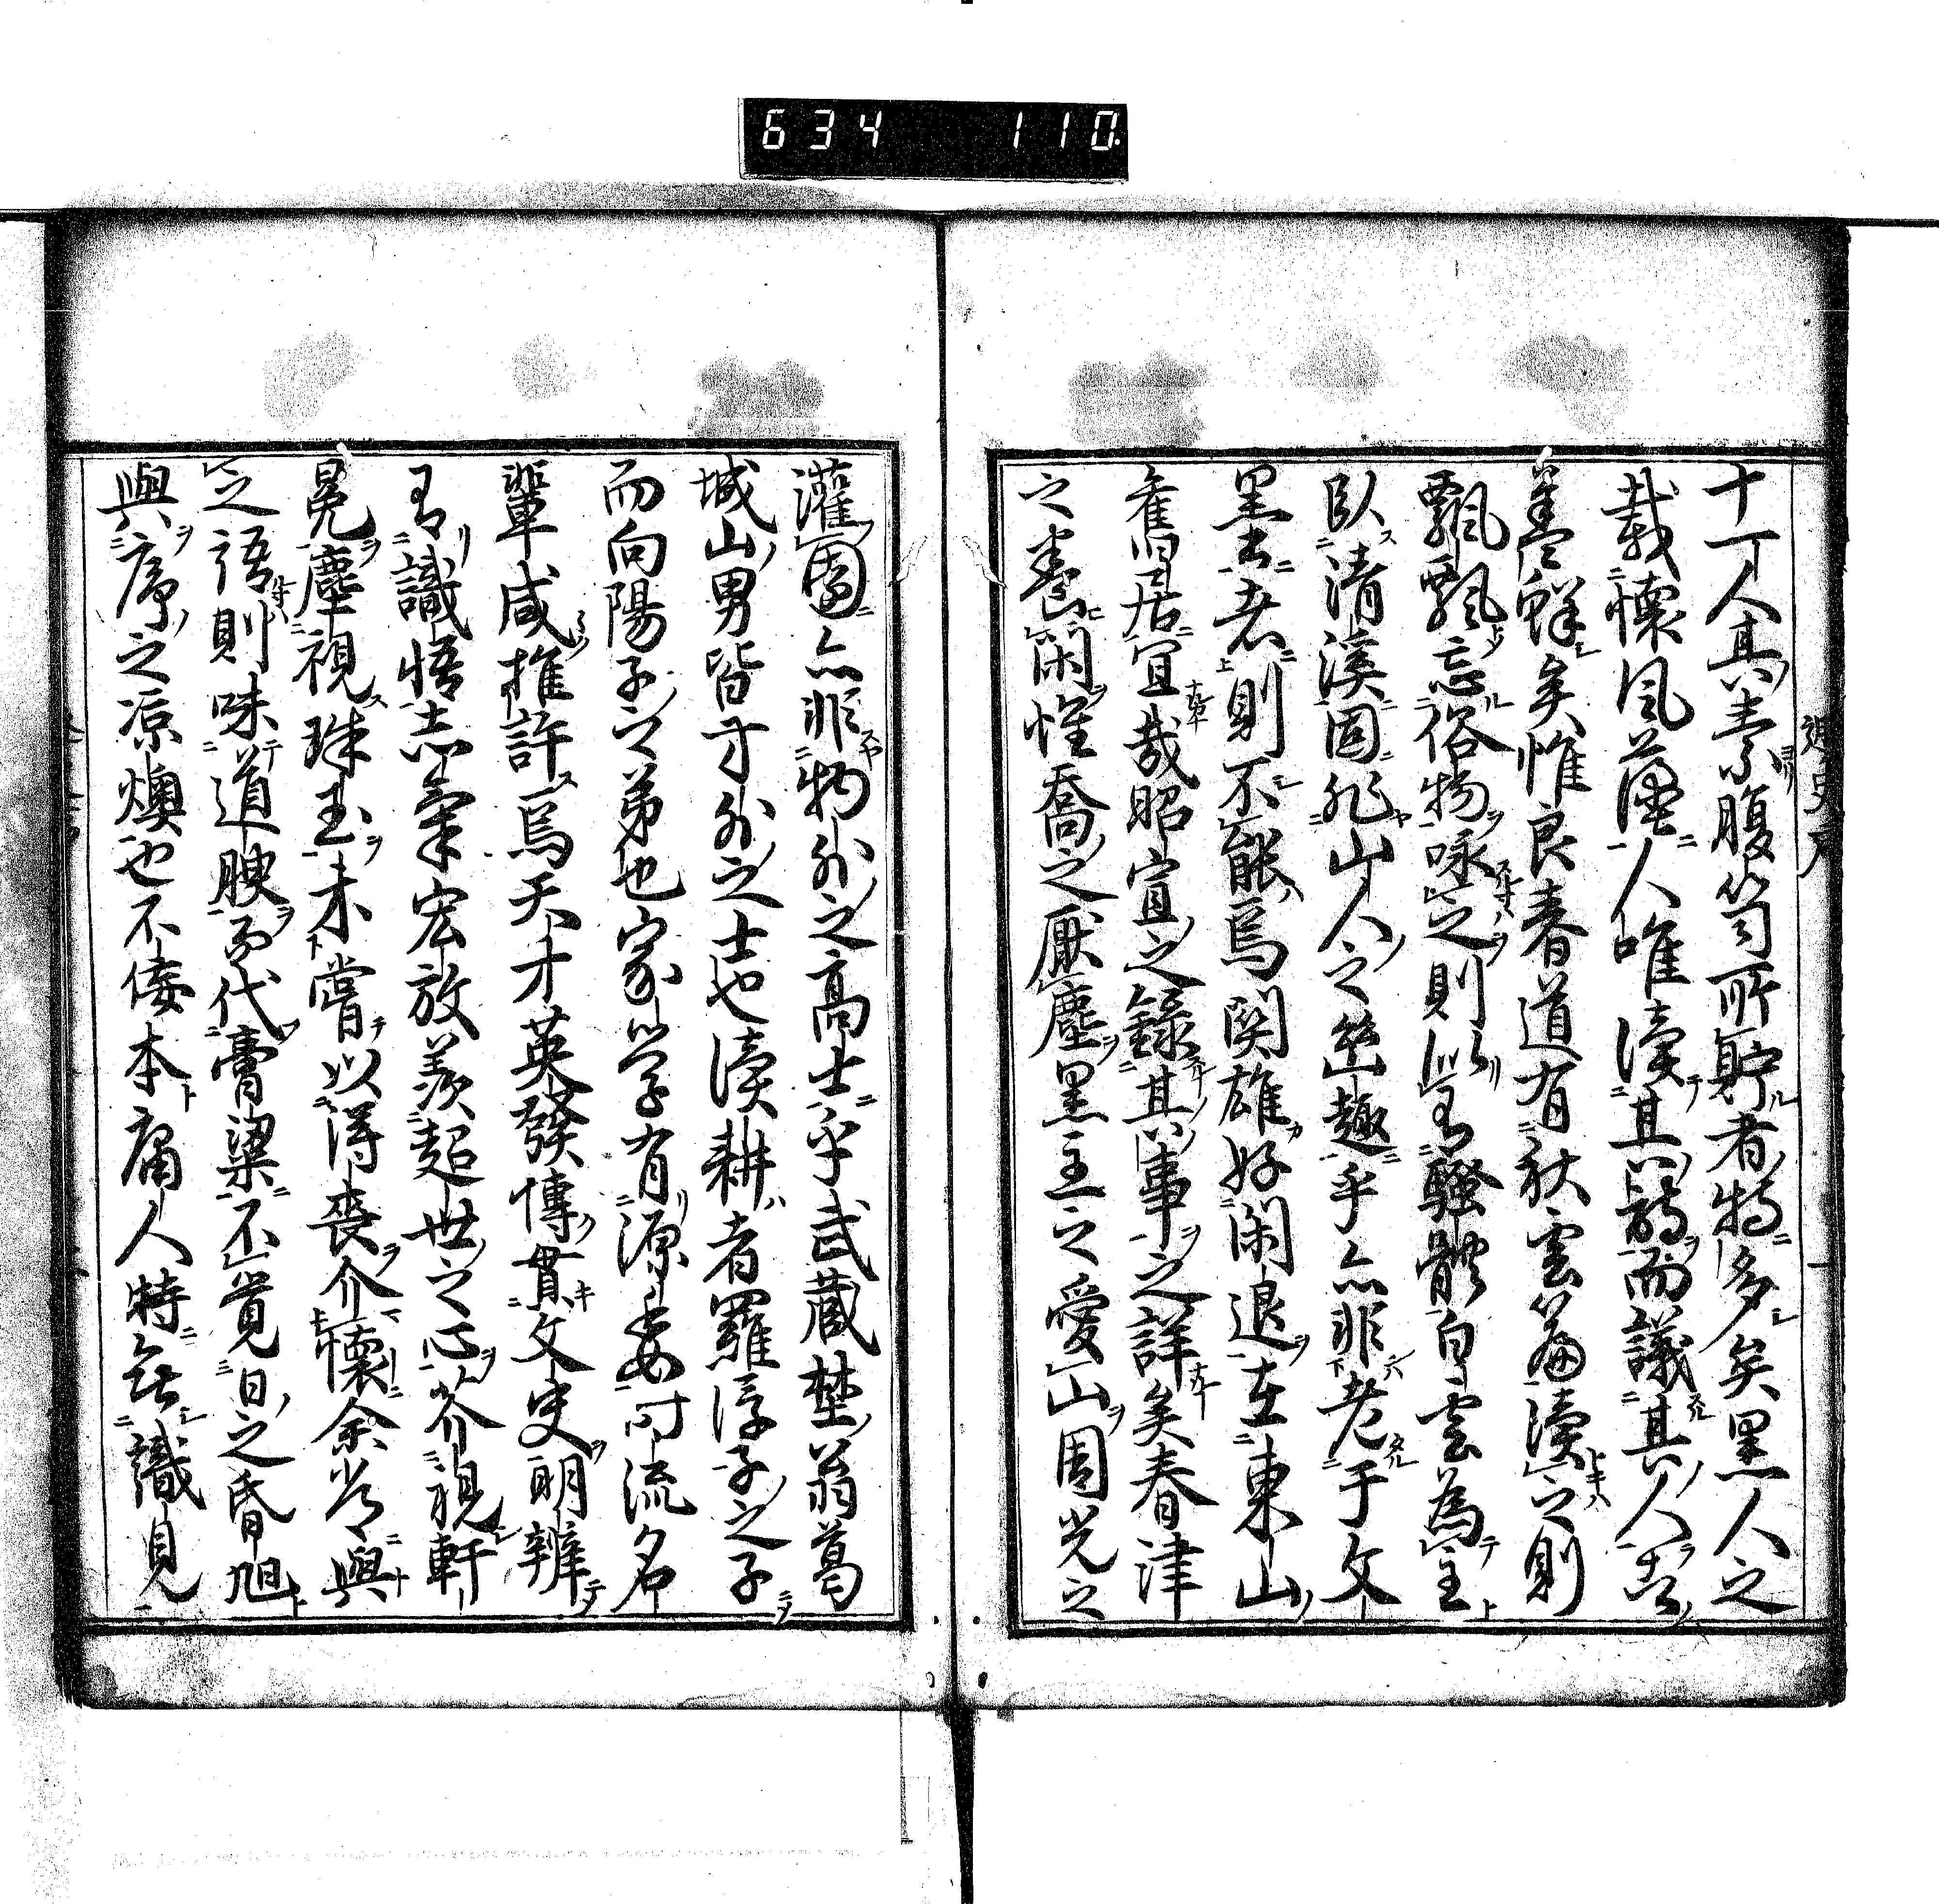 634 110
十一人其素腹笥所貯者特多矣黒人之
載懷風藻人唯讀其詩而議其人者
盖鮮矣惟良春道有秋雲篇讀之則
飄飄忘俗物咏之則以有騷體白雲為主
臥清溪固非山人之幽趣乎亦非老于文
墨者則不能焉関雄好閑退在東山
舊居宜哉昭宣之録其事之詳矣春津
之養閑惟喬之厭塵黒主之愛山周光之
灌園亦非物外之高士乎武蔵埜翁葛
城山男皆方外之士也讀耕者羅浮子之子
而向陽子之弟也家学有源委時流名
輩咸推許焉天才英發博貫文史明辨
有識悟志氣宏放羨超世之心芥視軒
冕塵視珠玉未嘗以得喪介懷余嘗與
之語則味道腴而代膏粱不覚日之昏旭
與序之凉燠也不佞本庸人特無識見